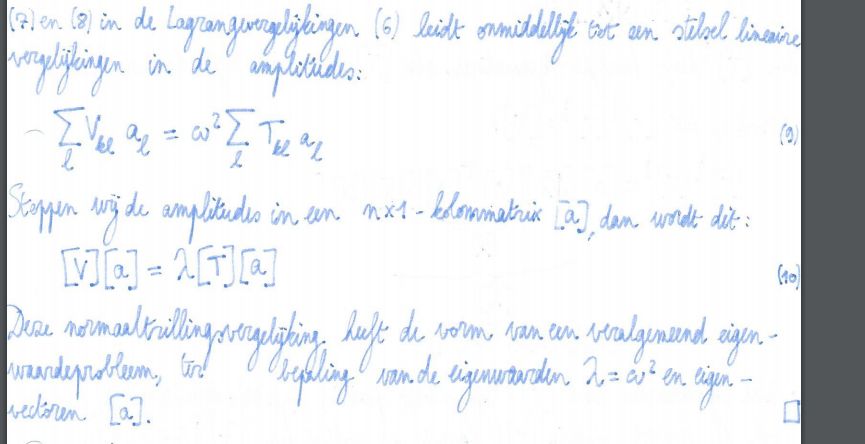 (7) en (8) in de Lagrangevergelijkingen (6) leidt onmiddellijk tot een stelsel lineaire
vergelijkingen in de amplitudes:
∑_l V_{kl} a_l = ω² ∑_l T_{kl} a_l (9)
Stoppen wij de amplitudes in een n×1 - kolommatrix [a], dan wordt dit:
[V][a] = λ[T][a] (10)
Deze normaaltrillingsvergelijking heeft de vorm van een veralgemeend eigen-
waardeprobleem, ter bepaling van de eigenwaarden λ = ω² en eigen-
vectoren [a]. □